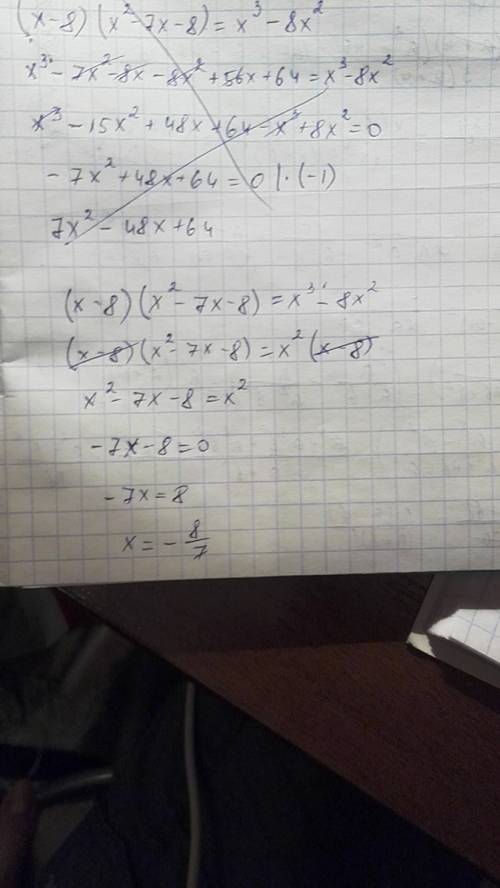 (x-8)(x²-7x-8)=x³-8x²
x³-7x²-8x-8x²+56x+64=x³-8x²
x³-15x²+48x+64-x³+8x²=0
-7x²+48x+64=0 |·(-1)
7x²-48x+64
(x-8)(x²-7x-8)=x³-8x²
(x-8)(x²-7x-8)=x²(x-8)
x²-7x-8=x²
-7x-8=0
-7x=8
x=-8/7